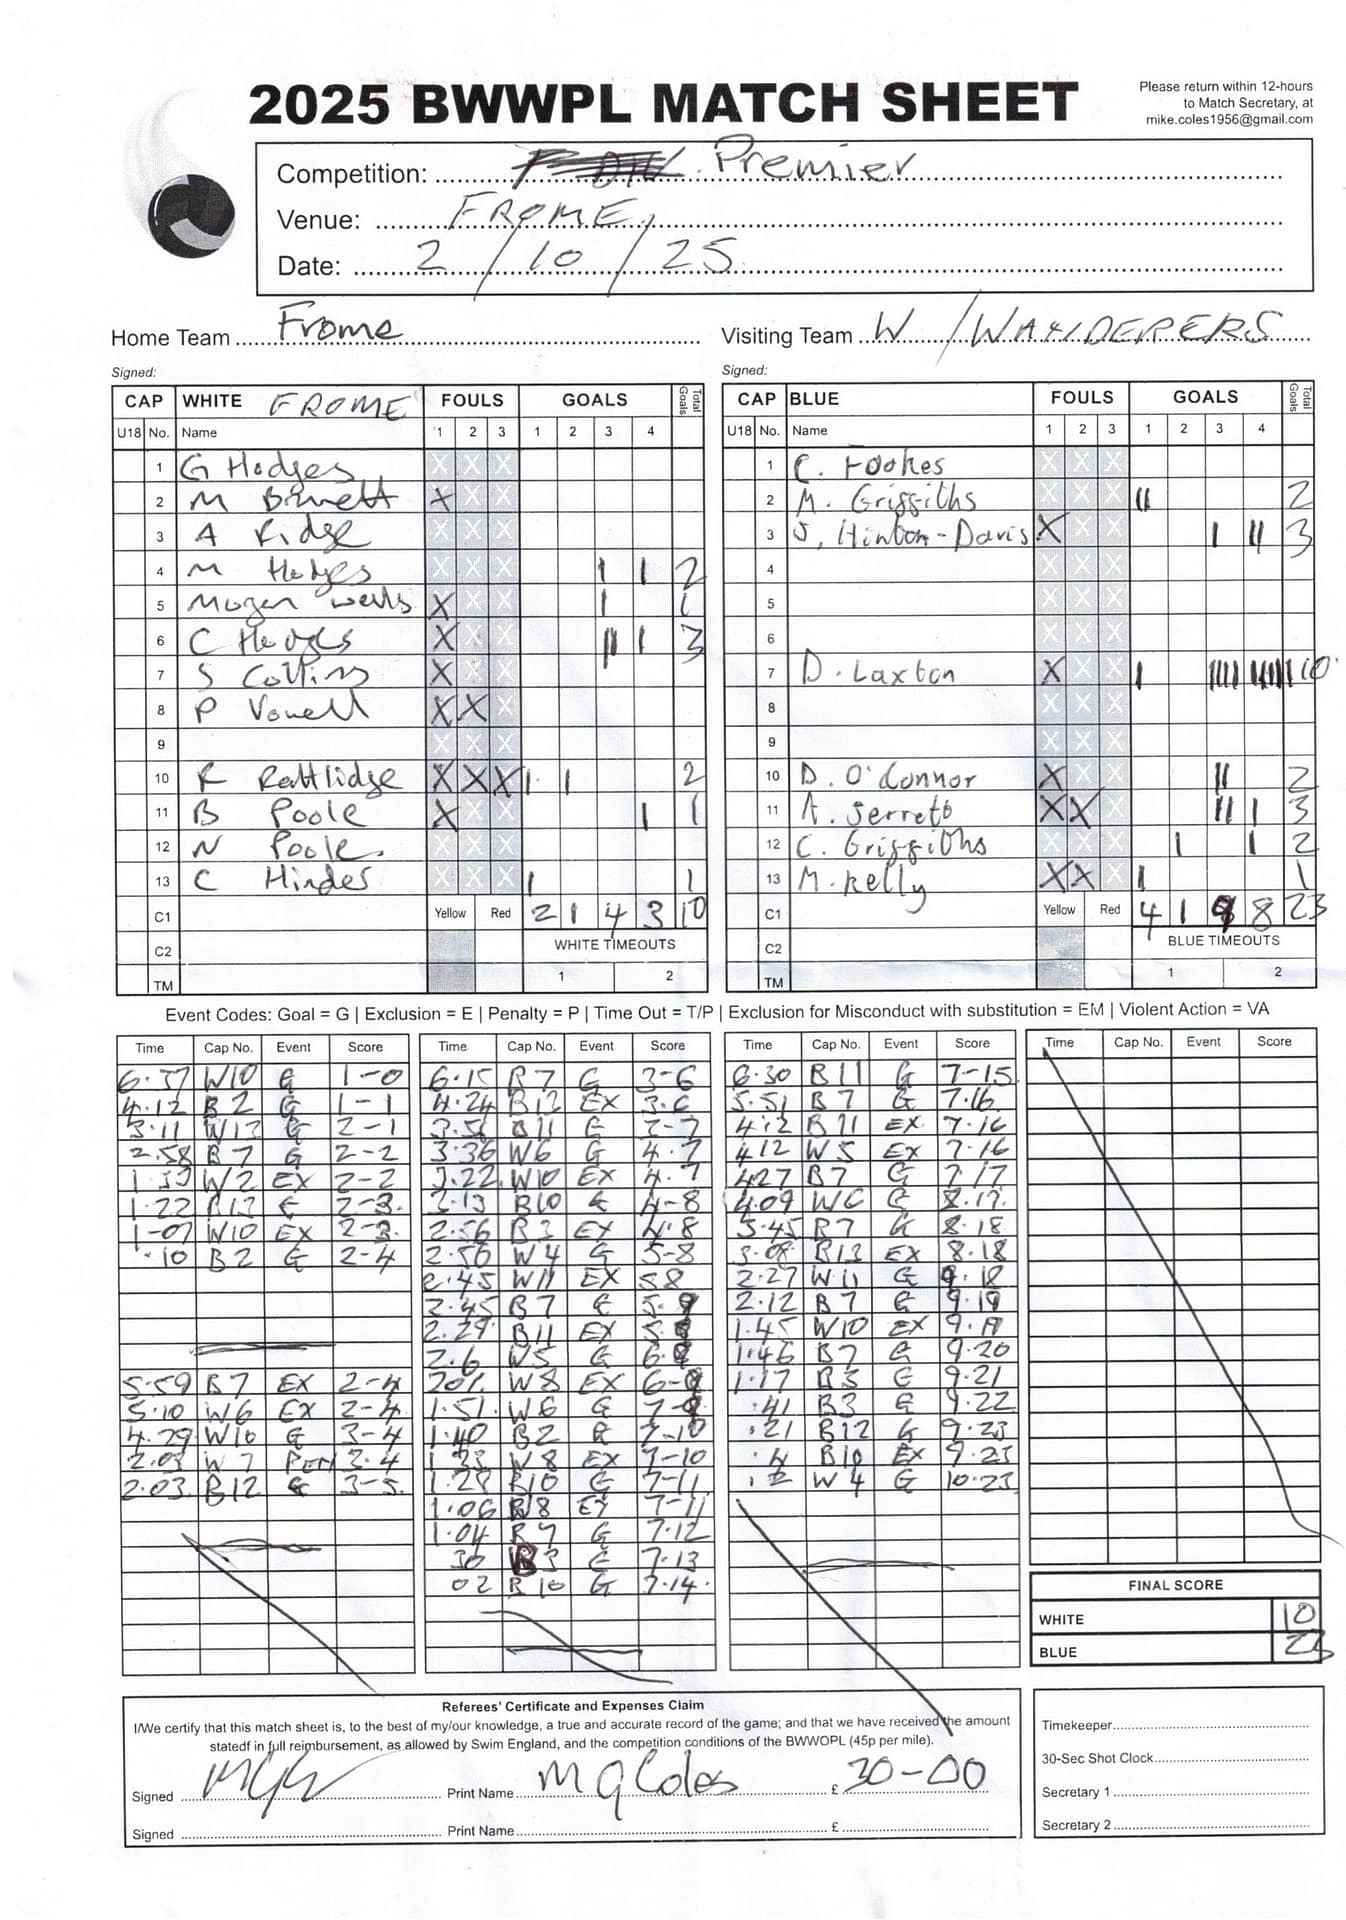 2025 BWWPL MATCH SHEET
Please return within 12-hours
to Match Secretary, at
mike.coles1956@gmail.com
Competition: Premier
Venue: FROME
Date: 2/10/25
Home Team Frome
Visiting Team W/WANDERERS
Signed:
Signed:
CAP WHITE FROME FOULS GOALS Total Goals
U18 No. Name 1 2 3 1 2 3 4
1 G Hodges X X X
2 M Binnett X X X
3 A Ridge X X X
4 M Hodges X X X | | 2
5 Mogan Wells X X X | 1
6 C Hodges X X X || | 3
7 S Collins X X X
8 P Vowell X X X
9 X X X
10 R Rattlidge X X X | | 2
11 B Poole X X X | 1
12 N Poole X X X
13 C Hindes X X X | 1
C1 Yellow Red 2 1 4 3 10
C2 WHITE TIMEOUTS
TM 1 2
CAP BLUE FOULS GOALS Total Goals
U18 No. Name 1 2 3 1 2 3 4
1 C. Fookes X X X
2 M. Griffiths X X X || 2
3 J. Hinton-Davis X X X | || 3
4 X X X
5 X X X
6 X X X
7 D. Laxton X X X | 10
8 X X X
9 X X X
10 D. O'Connor X X X || 2
11 A. Jerrett X X X || | 3
12 C. Griffiths X X X | | 2
13 M. Kelly X X X | 1
C1 Yellow Red 4 1 8 23
C2 BLUE TIMEOUTS
TM 1 2
Event Codes: Goal = G | Exclusion = E | Penalty = P | Time Out = T/P | Exclusion for Misconduct with substitution = EM | Violent Action = VA
Time Cap No. Event Score
6.37 W10 G 1-0
4.12 B2 G 1-1
3.11 W13 G 2-1
2.58 B7 G 2-2
W2 EX 2-2
1.22 B13 G 2-3.
1-07 W10 EX 2-3.
.10 B2 G 2-4
5.59 B7 EX 2-4
5.10 W6 EX 2-4
4.29 W10 G 3-4
2.03 W7 PEN 3.4
2.03. B12 G 3-5
Time Cap No. Event Score
6.15 B7 G 3-6
4.24 B12 EX 3.6
B11 G 3-7
3.36 W6 G 4.7
3.22. W10 EX 4.7
3.13 B10 G 4-8
2.56 B3 EX 4.8
2.50 W4 G 5-8
2.45 W11 EX 58
2.45 B7 G 5.9
2.29 B11 EX 5.9
2.6 W5 G 6.9
201. W8 EX 6-9
1.51. W6 G 7-9
1.40 B2 G 7-10
1.33 W8 EX 7-10
1.28 B10 G 7-11
1.06 W8 EX 7-11
1.04 B7 G 7.12
30 B3 G 7.13
02 B10 G 7.14.
Time Cap No. Event Score
6.30 B11 G 7-15
5.51 B7 G 7.16
4.12 B11 EX 7.16
412 W5 EX 7.16
427 B7 G 7.17
4.09 W6 G 8.17.
3.45 B7 G 8.18
3.08 B13 EX 8.18
2.27 W11 G 9.18
2.12 B7 G 9.19
1.45 W10 EX 9.19
1.46 B7 G 9.20
1.17 B3 G 9.21
.41 B3 G 9.22
.21 B12 G 9.23
.4 B10 EX 9.23
.2 W4 G 10.23
Time Cap No. Event Score
FINAL SCORE
WHITE 10
BLUE 23
Referees' Certificate and Expenses Claim
I/We certify that this match sheet is, to the best of my/our knowledge, a true and accurate record of the game; and that we have received the amount
statedf in full reimbursement, as allowed by Swim England, and the competition conditions of the BWWOPL (45p per mile).
Signed Print Name M G Coles £ 30-00
Signed Print Name £
Timekeeper
30-Sec Shot Clock
Secretary 1
Secretary 2